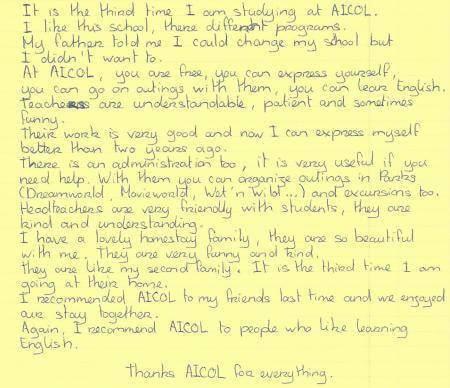 It is the third time I am studying at AICOL.
I like this school, there different programs.
My father told me I could change my school but
I didn't want to.
At AICOL, you are free, you can express yourself,
you can go on outings with them, you can learn English.
Teachers are understandable, patient and sometimes
funny.
Their work is very good and now I can express myself
better than two years ago.
There is an administration too, it is very useful if you
need help. With them you can organize outings in Parks
(Dreamworld, Movieworld, Wet'n Wild...) and excursions too.
Headteachers are very friendly with students, they are
kind and understanding.
I have a lovely homestay family, they are so beautiful
with me. They are very funny and kind.
they are like my second family. It is the third time I am
going at their home.
I recommended AICOL to my friends last time and we enjoyed
our stay together.
Again, I recommend AICOL to people who like learning
English.
Thanks AICOL for everything.